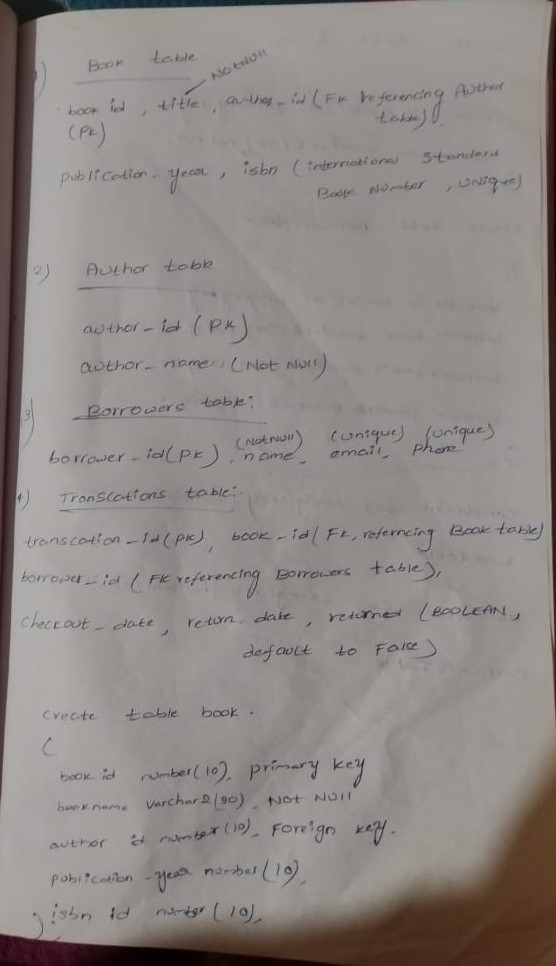 1) Book table
NotNull
book id, title, author-id (FK referencing Author
(PK) table),
publication-year, isbn (international Standard
Book Number, UNique)
2) Author table
author-id (PK)
author-name (Not Null)
3) Borrowers table:
(NotNull) (unique) (unique)
borrower-id(PK), name, email, phone
4) Transcations table:
transcation-id(PK), book-id (FK, referncing Book table)
borrower-id (FK referencing Borrowers table),
checkout-date, return-date, returned (BOOLEAN,
default to False)
create table book.
(
book id number(10), primary key
bookname Varchar2(90), Not Null
author id number(10), Foreign key.
publication-year number(10),
isbn id number(10),
)